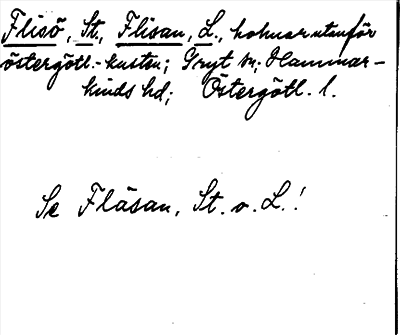 Flisö, St., Flisan, L., holmar utanför
östergötl.-kusten; Gryt sn; Hammar-
kinds hd; Östergötl. l.
Se Fläsan, St. o. L.!